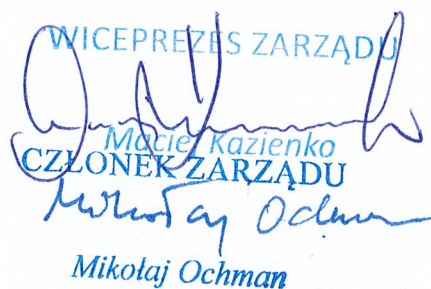 WICEPREZES ZARZĄDU
Maciej Kazienko
CZŁONEK ZARZĄDU
Mikołaj Ochman
Mikołaj Ochman